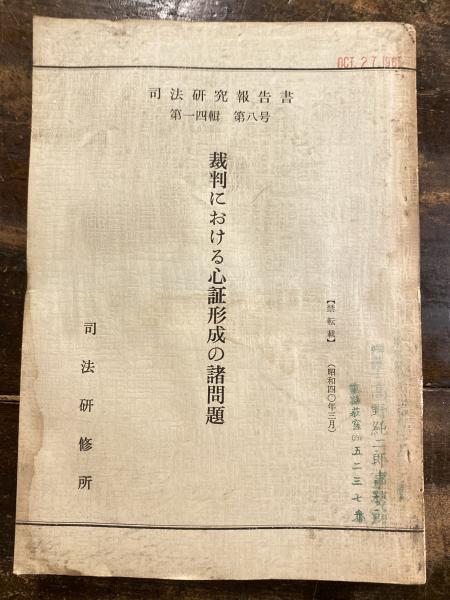 OCT. 27. 196
司法研究報告書
第一四輯 第八号
【禁転載】
(昭和四〇年三月)
裁判における心証形成の諸問題
司法研修所
五二三七番